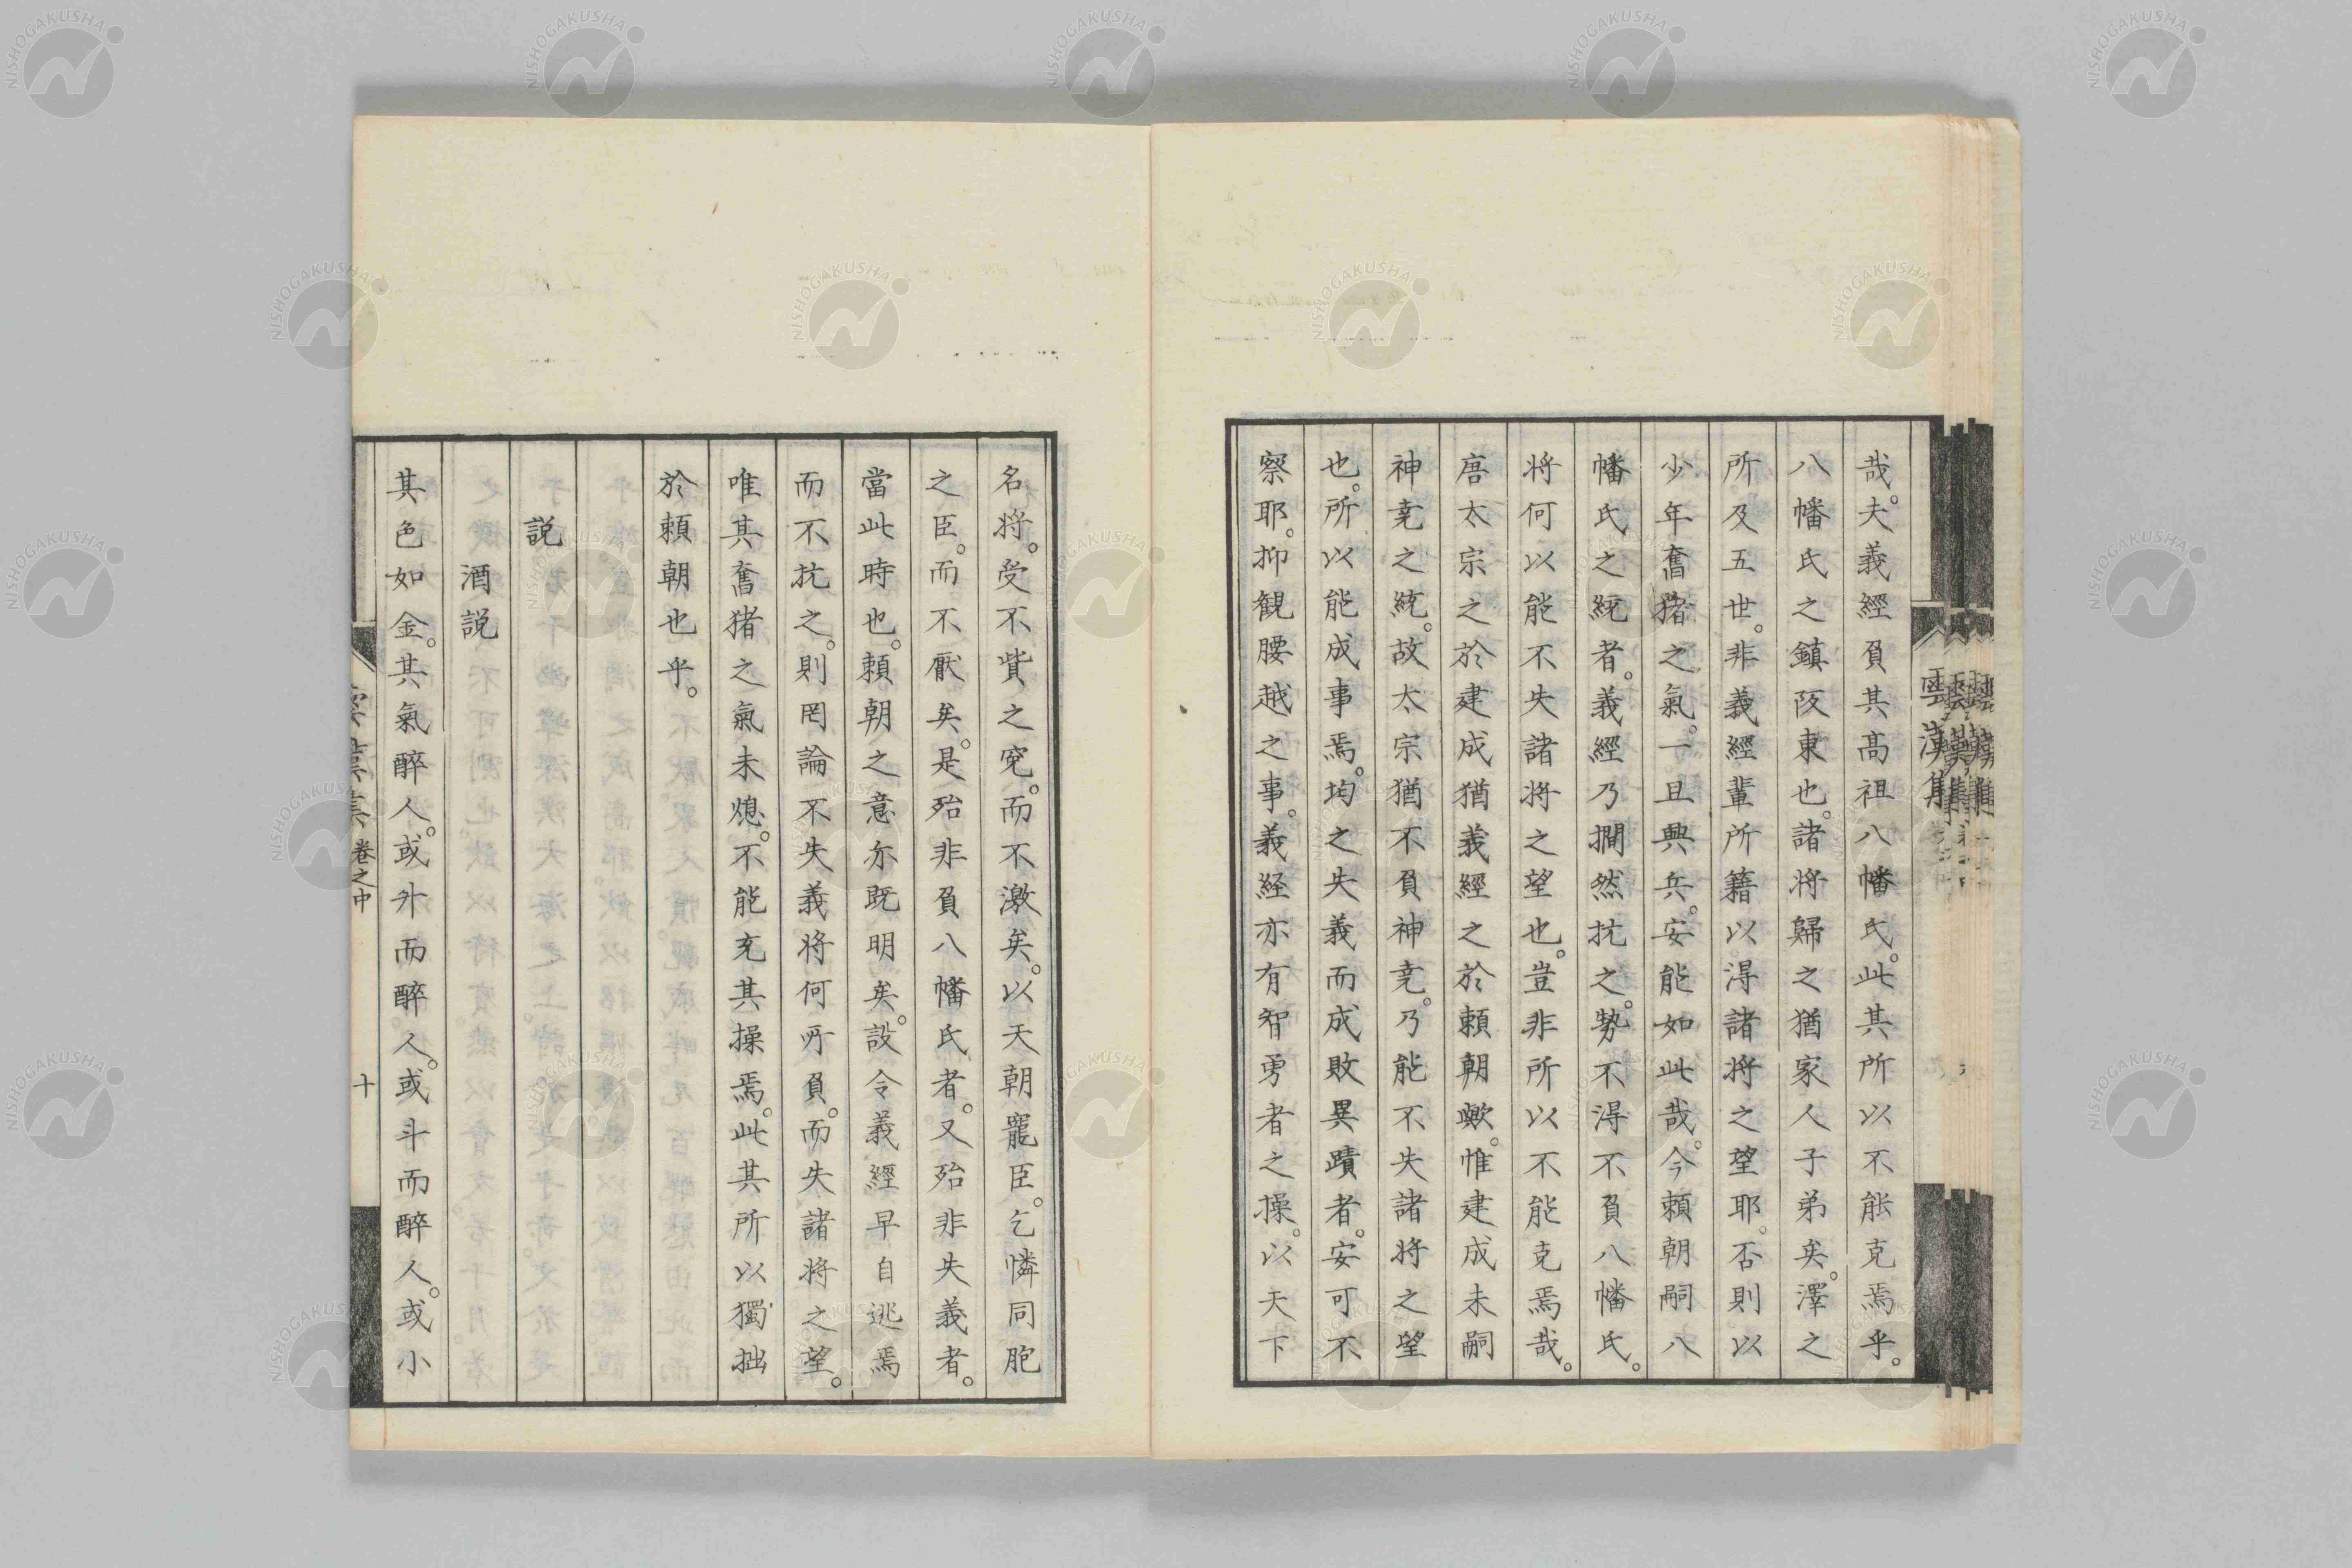 哉。夫義經負其高祖八幡氏。此其所以不能克焉乎。
八幡氏之鎮阪東也。諸将歸之猶家人子弟矣。澤之
所及五世。非義經輩所籍以淂諸将之望耶。否則以
少年奮猪之氣。一旦興兵。安能如此哉。今頼朝嗣八
幡氏之統者。義經乃撊然抗之。勢不淂不負八幡氏。
将何以能不失諸将之望也。豈非所以不能克焉哉。
唐太宗之於建成猶義經之於頼朝歟。惟建成未嗣
神尭之統。故太宗猶不負神尭。乃能不失諸将之望
也。所以能成事焉。均之失義而成敗異蹟者。安可不
察耶。抑観腰越之事。義経亦有智勇者之操。以天下
名将。受不貲之寃。而不激矣。以天朝寵臣。乞憐同胞
之臣。而不厭矣。是殆非負八幡氏者。又殆非失義者。
當此時也。頼朝之意亦既明矣。設令義經早自逃焉
而不抗之。則罔論不失義将何所負。而失諸将之望。
唯其奮猪之氣未熄。不能充其操焉。此其所以獨拙
於頼朝也乎。
説
酒説
其色如金。其氣醉人。或升而醉人。或斗而醉人。或小
卷之中
十
NISHOGAKUSHA